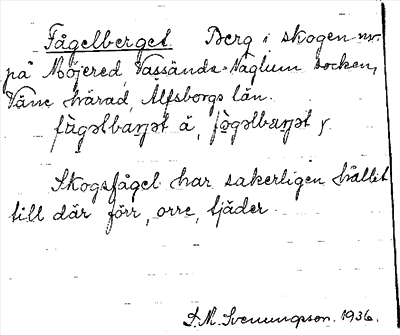 Fågelberget Berg i skogen nv.
på Möjered, Vassända-Naglum socken,
Väne härad, Älfsborgs län.
fùgəlbarjət ä, fùgəlbarjət y.
Skogsfågel har sakerligen hållet
till där förr, orre, tjäder.
A. M. Svenungson. 1936.